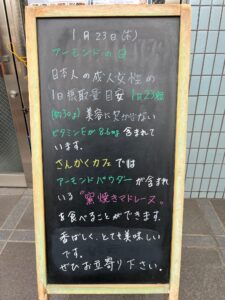 1月23日(木)
アーモンドの日
日本人の成人女性の
1日摂取量目安 1日23粒
(約30g) 美容に欠かせない
ビタミンEが8.6mg含まれて
います。
さんかくカフェでは
アーモンドパウダーが含まれ
ている"窯焼きマドレーヌ"
を食べることができます。
香ばしく、とても美味しい
です。
ぜひお立寄り下さい。